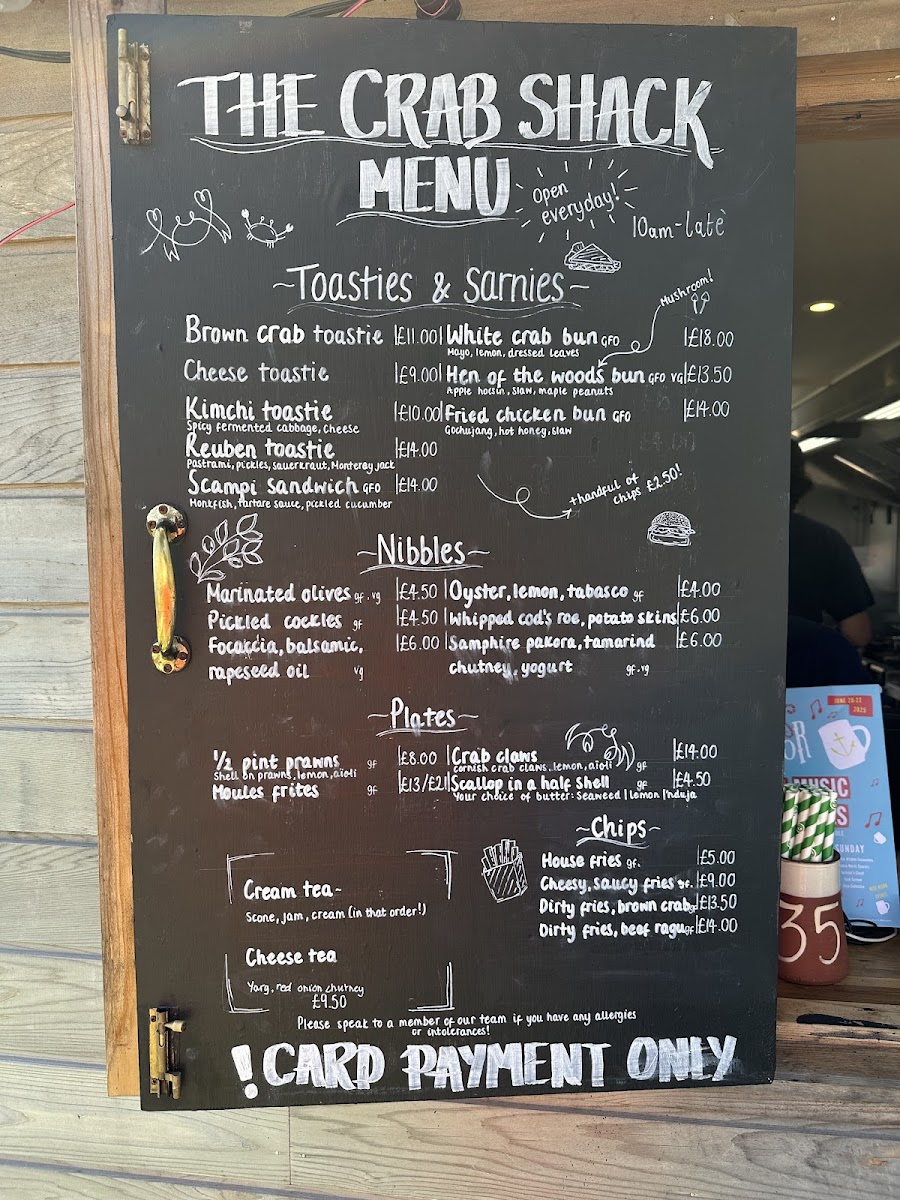 THE CRAB SHACK
MENU
Open everyday!
10am-late
~Toasties & Sarnies~
Mushroom!
Brown crab toastie £11.00
Cheese toastie £9.00
Kimchi toastie £10.00
Spicy fermented cabbage, cheese
Reuben toastie £14.00
Pastrami, pickles, sauerkraut, Monterey jack
Scampi sandwich GFO £14.00
Monkfish, tartare sauce, pickled cucumber
White crab bun GFO £18.00
Mayo, lemon, dressed leaves
Hen of the woods bun GFO vg £13.50
Apple hoisin, slaw, maple peanuts
Fried chicken bun GFO £14.00
Gochujang, hot honey, slaw
+handful of
chips £2.50!
~Nibbles~
Marinated olives gf.vg £4.50
Pickled cockles gf £4.50
Focaccia, balsamic, £6.00
rapeseed oil vg
Oyster, lemon, tabasco gf £4.00
Whipped cod's roe, potato skins £6.00
Samphire pakora, tamarind £6.00
chutney, yogurt gf.vg
~Plates~
1/2 pint prawns gf £8.00
Shell on prawns, lemon, aioli
Moules frites gf £13/£21
Crab claws £14.00
Cornish crab claws, lemon, aioli gf
Scallop in a half shell gf £4.50
Your choice of butter: Seaweed | lemon | 'nduja
~Chips~
House fries gf. £5.00
Cheesy, saucy fries £9.00
Dirty fries, brown crab £13.50
Dirty fries, beef ragu gf £14.00
Cream tea~
Scone, jam, cream (in that order!)
Cheese tea
Yarg, red onion chutney
£9.50
Please speak to a member of our team if you have any allergies
or intolerances!
! CARD PAYMENT ONLY
JUNE 20-22
2025
MUSIC
SUNDAY
35